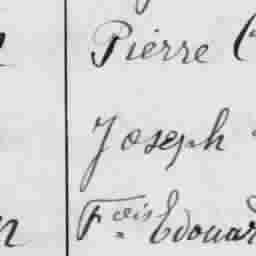 Pierre
Joseph
F.ois Edouar